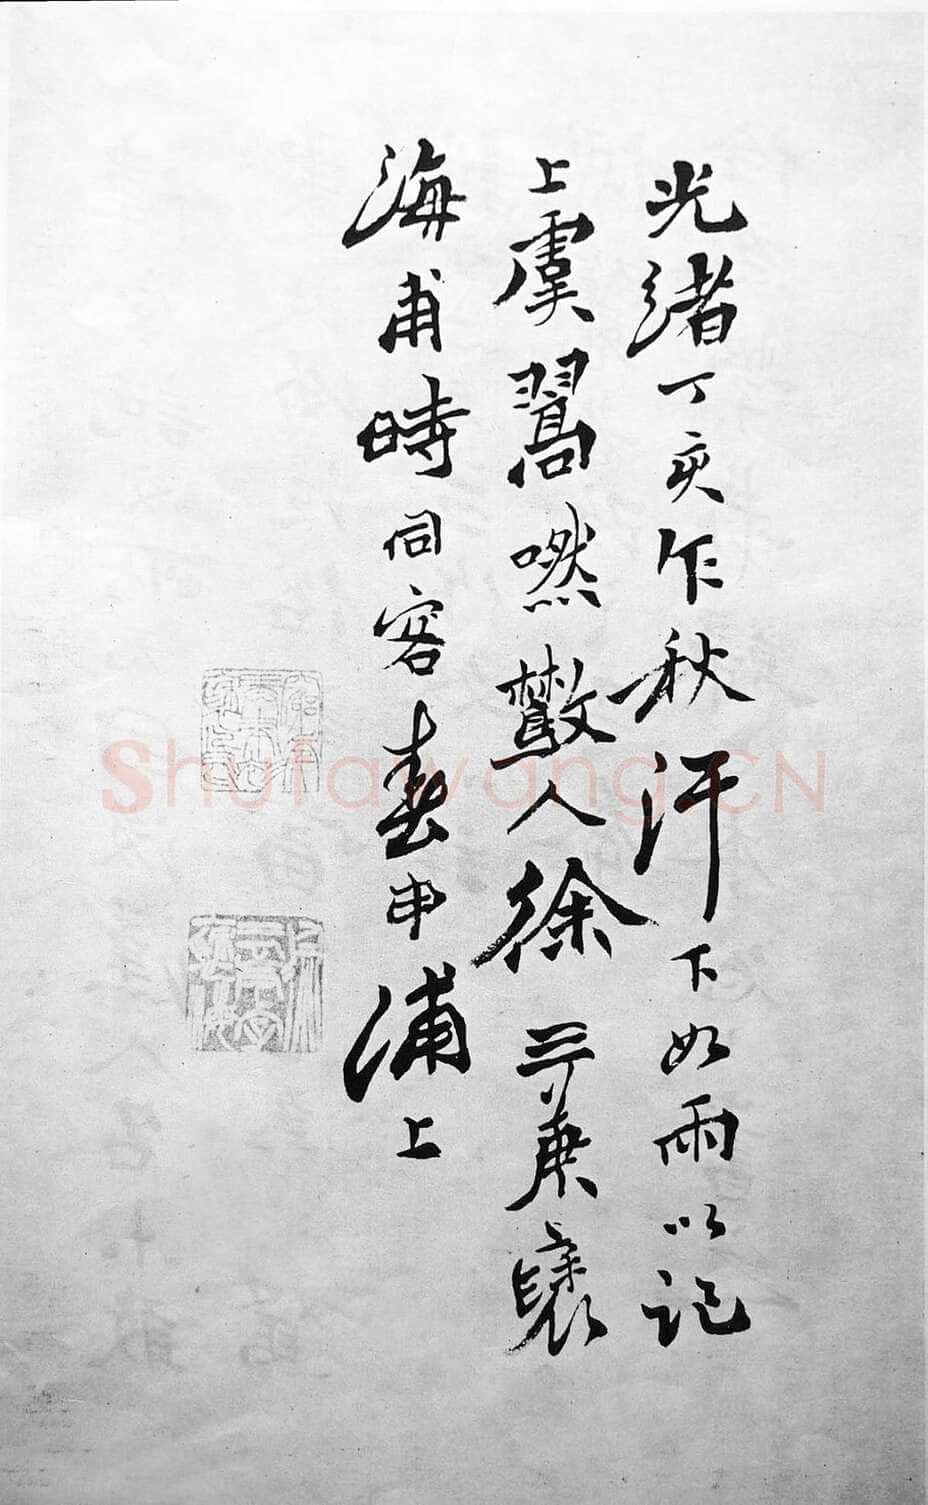 光緒丁亥乍秋汗下如雨以記
上虞翯嘫散人徐三庚褎
海甫時同客春申浦上
Shufawang.CN